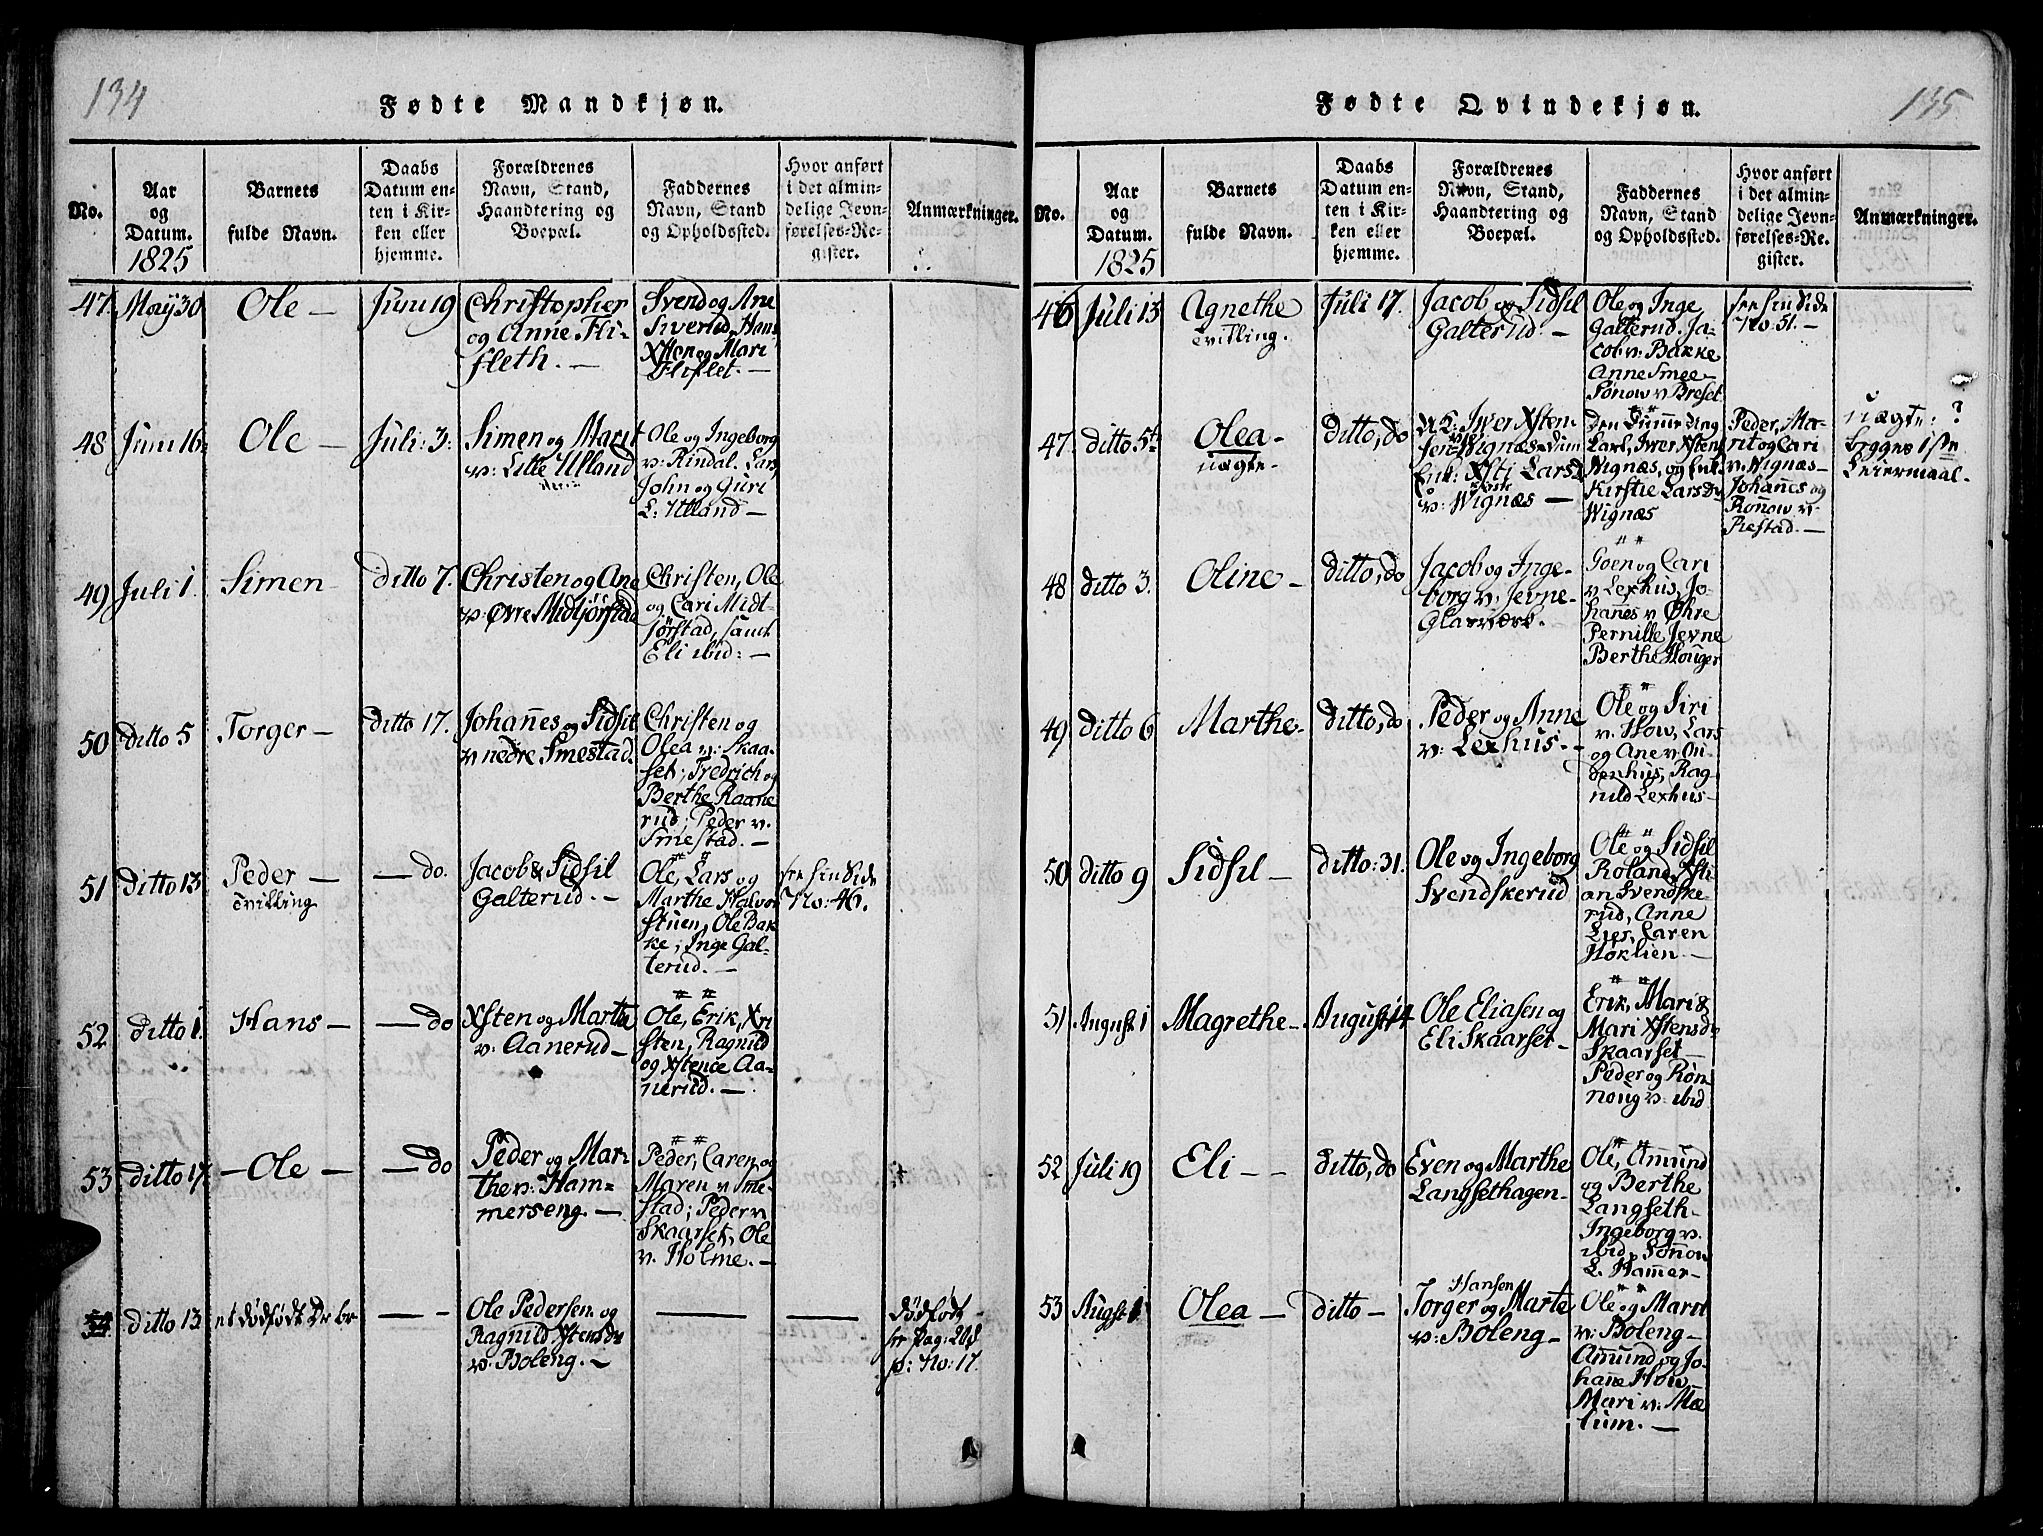 134
Fødte Mandkjøn.
No.
Aar
og
Datum.
1825
Barnets
fulde Navn.
Daabs
Datum en-
ten i Kir-
ken eller
hjemme.
Forældrenes
Navn, Stand,
Haandtering og
Boepæl.
Faddernes
Navn, Stand
og Opholdssted.
Hvor anført
i det almin-
delige Jevn-
førelses-Re-
gister.
Anmærkninger.
47. May 30
Ole —
Juni 19
Christopher
og Anne Fli-
fleth. —
Svend og Ane
Siverud, Hans
Xsten og Mari
Fliflet. —
48 Juni 16
Ole —
Juli: 3:
Simen og Marit
v: Lille Ulland
Ole og Ingeborg
v: Rindal. Lars,
John og Guri
L: Ulland —
49 Juli 1.
Simen —
Ditto 7.
Christen og Ane
v: Øvre Midtjørstad
Christen, Ole
og Cari Midt-
jørstad, samt
Eli ibid: —
50 ditto 5
Torger —
ditto 17.
Johannes og Sidsil
v nedre Smestad.
Christen og
Olea v: Skaa-
set; Fredrich og
Berthe Raane
rud; Peder v.
Smestad. —
51 ditto 13
Peder —
Tvilling
— do.
Jacob & Sidsil
Galterud. —
Ole, Lars og
Marthe Halvor
stuen, Ole Bak
ke; Inge Gal-
terud. —
see hin Side
No: 46.
52 ditto 1.
Hans —
— do
Xsten og Marthe
v: Aanerud —
Ole, Erik, Xri
sten, Ragnild
og Xstence Aa-
nerud. —
53 ditto 17.
— Ole —
— do
Peder og Mar-
the v: Ham-
merseng. —
Peder, Caren og
Maren v Sme-
stad; Peder v
Skaarset, Ole
v: Holme. —
54 ditto 13
et dødfødt Drbr
— -
Ole Pedersen og
Ragnild Xstensdr
v: Boleng. —
—
—
dødfødt
se Pag: 208
No: 17.
135
Fødte Qvindekjøn.
No.
Aar
og
Datum.
1825
Barnets
fulde Navn.
Daabs
Datum en-
ten i Kir-
ken eller
hjemme.
Forældrenes
Navn, Stand,
Haandtering og
Boepæl.
Faddernes
Navn, Stand
og Opholdssted.
Hvor anført
i det almin-
delige Jevn-
førelses-Re-
gister.
Anmærkninger.
46 Juli 13
Agnethe
Tvilling.
Juli 17.
Jacob og Sidsil
Galterud. —
Ole og Inge
Galterud. Ja-
cob v: Bakke
Anne Smee—
Rønow v Breset
see hin Side
No: 51. —
47 ditto 5te
Olea —
uægte —
ditto, do
U.K. Iver Xsten-
sen Wignæs
Enk: Xsti Larsd
v: Wignæs —
Larh, Iver Xsten
Wignæs, og Enk:
Kirstie Larsdr
Wignæs
Peder, Ma-
rit og Cari
v: Wignæs —
Johannes og
Rønow v.
Restad. —
uægte: ?
begges 1ste
Leiermaal.
48 ditto 3.
Oline —
ditto, do
Jacob og Inge-
borg v: Jevne-
Glasværk.
Goen og Cari
v Lexhus, Jo-
hannes v Øhre
Pernille Jevne
Berthe Houger
49 ditto 6
Marthe —
ditto, do
Peder og Anne
v: Lexhus. -
Ole og Siri
v: How, Lars
og Ane v: Ou-
denhus, Rag-
nild Lexhus —
50 ditto 9
Sidsil —
ditto: 31.
Ole og Ingeborg
Svendskerud
Ole og Sidsil
Roland, Xsti-
an Svendske-
rud, Anne
Lier, Caren
Høklien. —
51 August 1
Magrethe —
August 14
Ole Eliasen og
Eli Skaarset —
Erik, Mari &
Mari Xstensdr
Skaarset —
Peder og Røn-
noug v: ibid
52 Juli 19
Eli — -
ditto, do
Even og Marthe
Langsethagen —
Ole, Amund
og Berthe
Langseth—
Ingeborg v.
ibid, Rønnow
L. Hammer —
53 Augst 1
Olea —
ditto —
Hansen
Torger og Marte
v: Boleng —
Ole og Marit
v: Boleng —
Amund og Jo-
hane How —
Mari v: Mæ-
lum. —